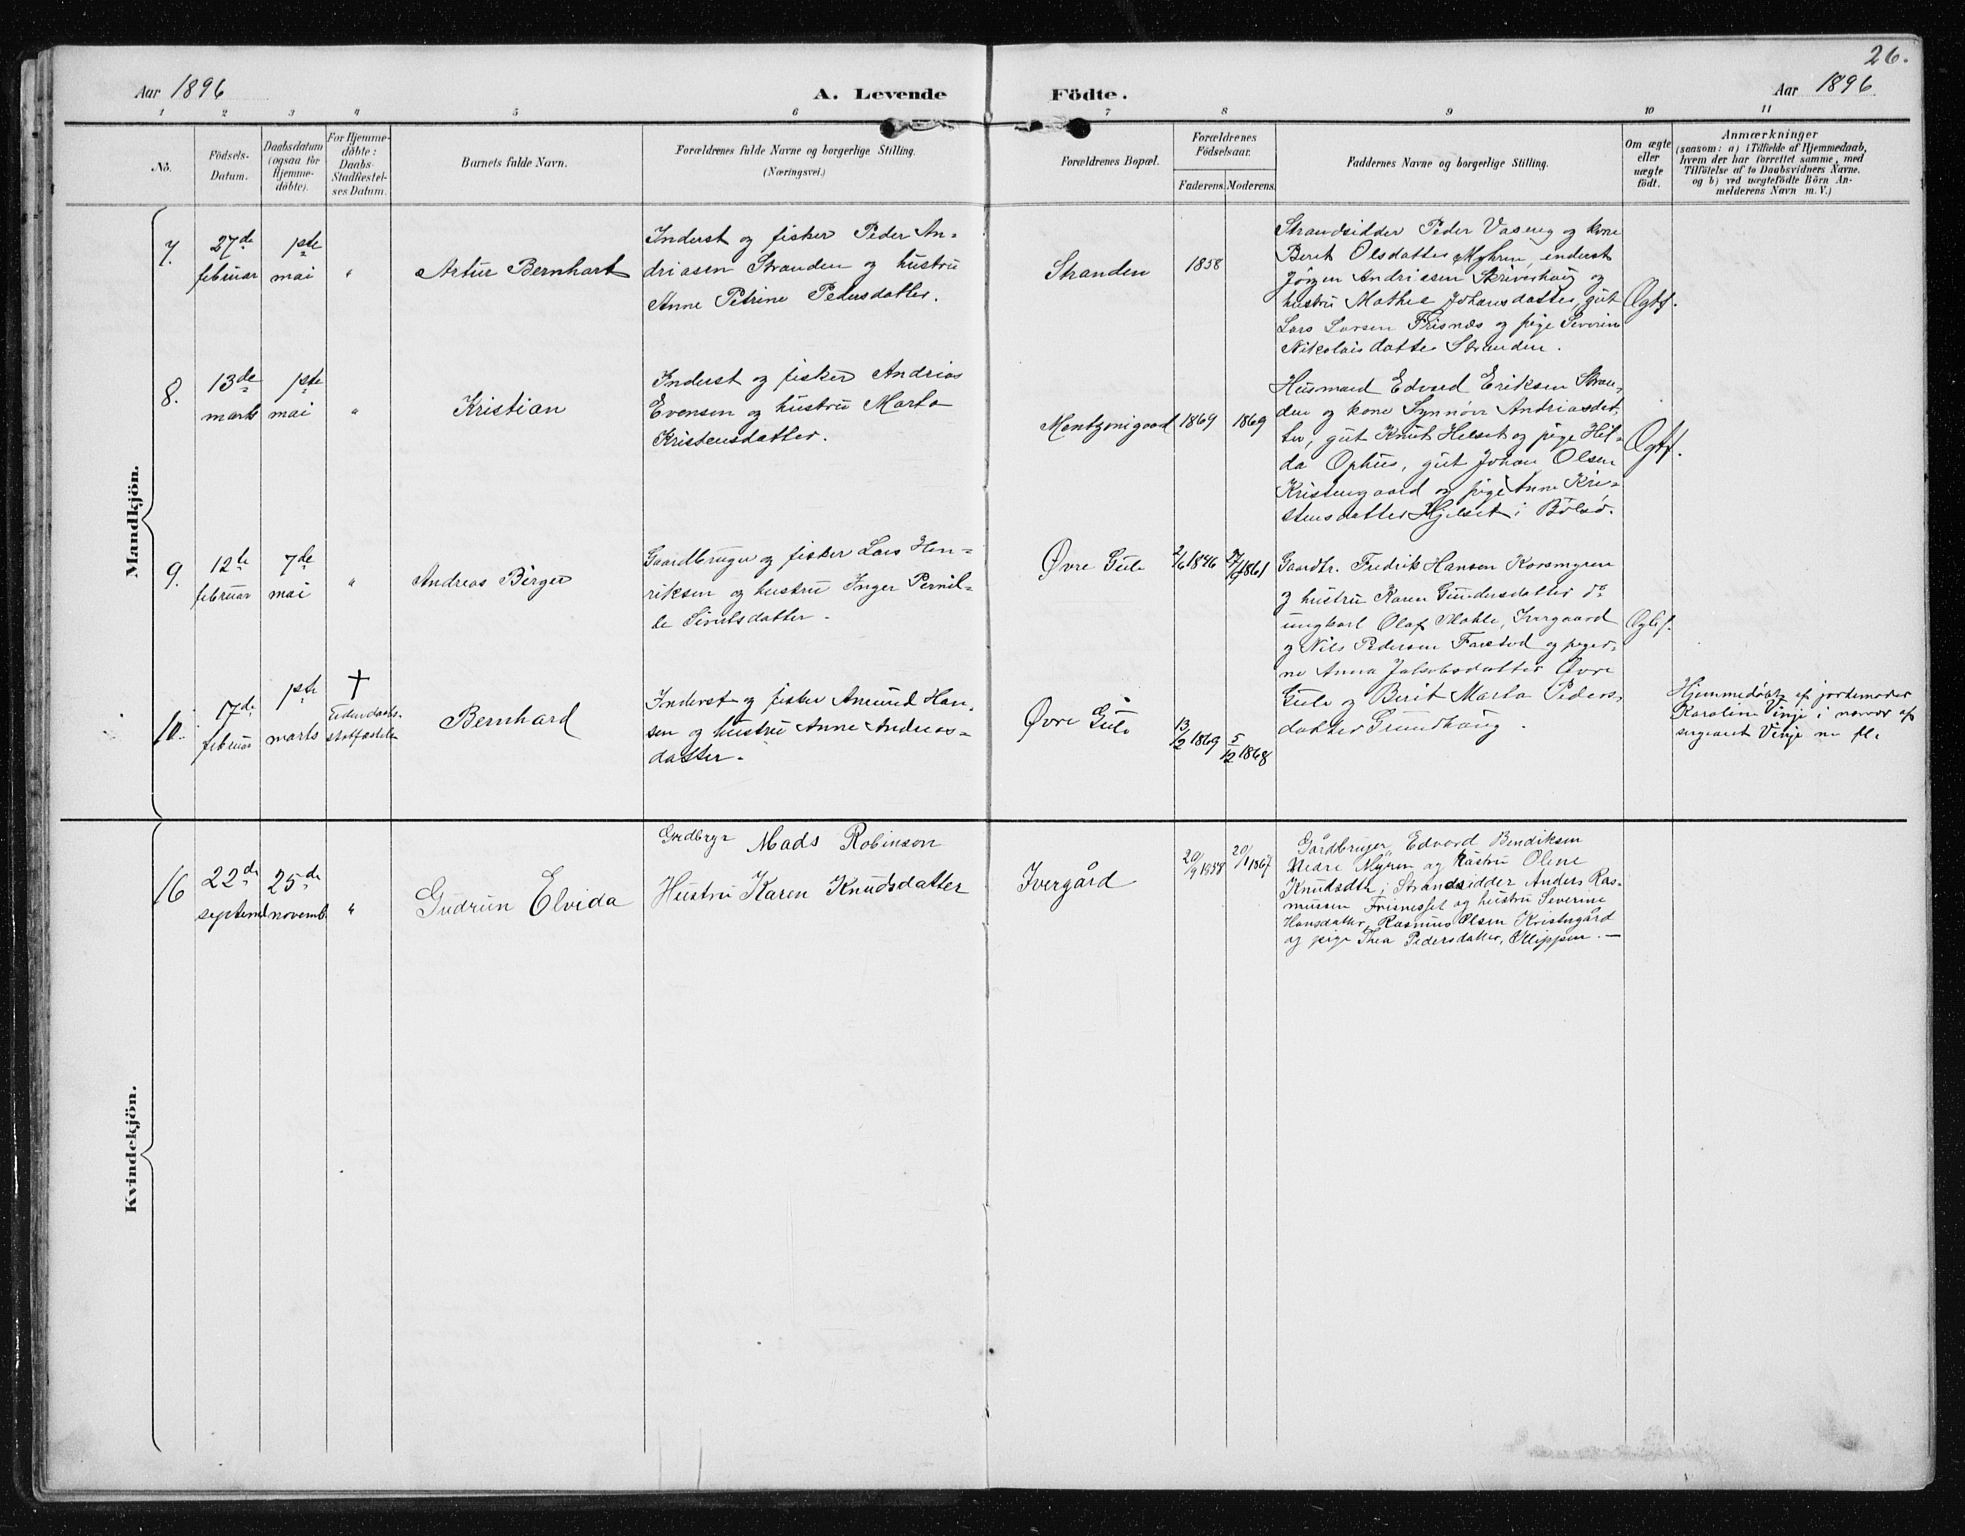 26.
Aar 1896
A. Levende Födte.
Aar 1896
1 2 3 4 5 6 7 8 9 10 11
No.
Födsels-
Datum.
Daabsdatum
(ogsaa for
Hjemme-
døbte).
For Hjemme-
døbte:
Daabs-
Stadfæstel-
ses Datum.
Barnets fulde Navn.
Forældrenes fulde Navne og borgerlige Stilling.
(Næringsvei.)
Forældrenes Bopæl.
Forældrenes
Fødselsaar.
Faderens.
Moderens.
Faddernes Navne og borgerlige Stilling.
Om ægte
eller
uægte
født.
Anmærkninger
(saasom: a) i Tilfælde af Hjemmedaab,
hvem der har forrettet samme, med
Tilföielse af to Daabsvidners Navne.
og b) ved uægtefödte Börn An-
melderens Navn m. V.)
Mandkjön.
7.
27de
februar
1ste
mai
"
Artur Bernhart
Inderst og fisker Peder An-
driasen Stranden og hustru
Anne Petrine Pedersdatter.
Stranden
1858
Strandsidder Peder Vaseng og kone
Berit Olsdatter Myhren, enderst
Jörgen Andriasen Skriverhaug og
hustru Mathea Johansdatter, gut
Lars Larsen Frisnæs og pige Severin
Nikolaisdatte Stranden.
Ægtf.
8.
13de
marts
1ste
mai
"
Kristian
Inderst og fisker Andrias
Evensen og hustru Marta
Kristensdatter.
Mentzonigaard
1869
1869
Husmand Edvard Eriksen Stran-
den og kone Synnöv Andriasdat
ter, gut Knut Helset og pige Hil-
da Ophus, gut Johan Olsen
Kristengaard og pige Anne Kri-
stensdatter Hjelset i Bolsø.
Ægtf.
9.
12te
februar
7de
mai
"
Andreas Birger
Gaardbruger og fisker Lars Hen-
riksen og hustru Inger Pernil-
le Sivertsdatter.
Øvre Gule
2/6 1846
1861
Gaardbr. Fredrik Hansen Korsmyren
og hustru Karen Gundersdatter do
ungkarl Olaf Mahle, Ivergaard
og Nils Pedersen Farstad og piger-
ne Anna Jakobsdatter Øvre
Gule og Berit Marta Peders-
datter Grundhaug.
Ægtef.
10.
17de
februar
1ste
marts
†
Bernhard
Inderst og fisker Amund Han-
sen og hustru Anne Andreas-
datter.
Øvre Gule
13/2 1869
5/12 1868
Hjemmedöbt af jordemoder
Karoline Vinje i nærvær af
sergeant Vinje m fl.
Kvindekjön.
16
22de
septemb
25de
novemb.
"
Gudrun Elvida
Grdbrgr Mads Robinson
Hustru Karen Knudsdatter
Ivergård
20/9 1858
20/1 1867
Gårdbruger Edvard Bendiksen
Nedre Myren og hustru Oline
Knudsdtr, Strandsidder Anders Ras-
mussen Frisnesset og hustru Severine
Hansdatter, Rasmus Olsen Kristngård
og pige Thea Pedersdatter, Klippen. —